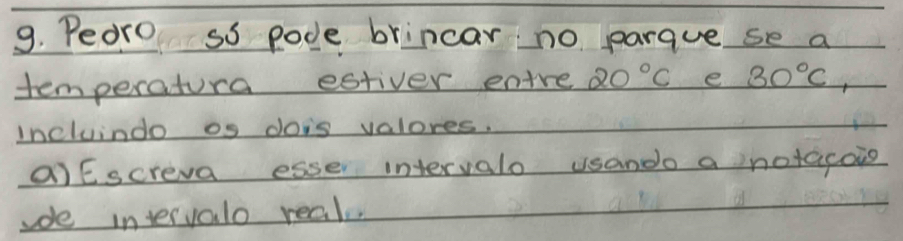 9. Pedro só pode brincar no parque se a
temperatura estiver entre 20°C e 30°C,
incluindo os dois valores.
a) Escreva esse intervalo usando a notação
de intervalo real.